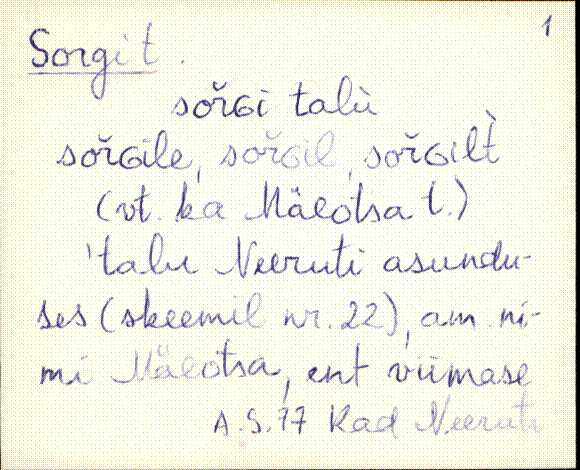 1
Sorgi t.
sořGi talù
sořGile, sořGil, sořGilt̀
(vt. ka Mäeotsa t.)
'talu Neeruti asundu-
ses (skeemil nr. 22), am. ni-
mi Mäeotsa, ent viimase
A.S. 77 Kad Neeruti